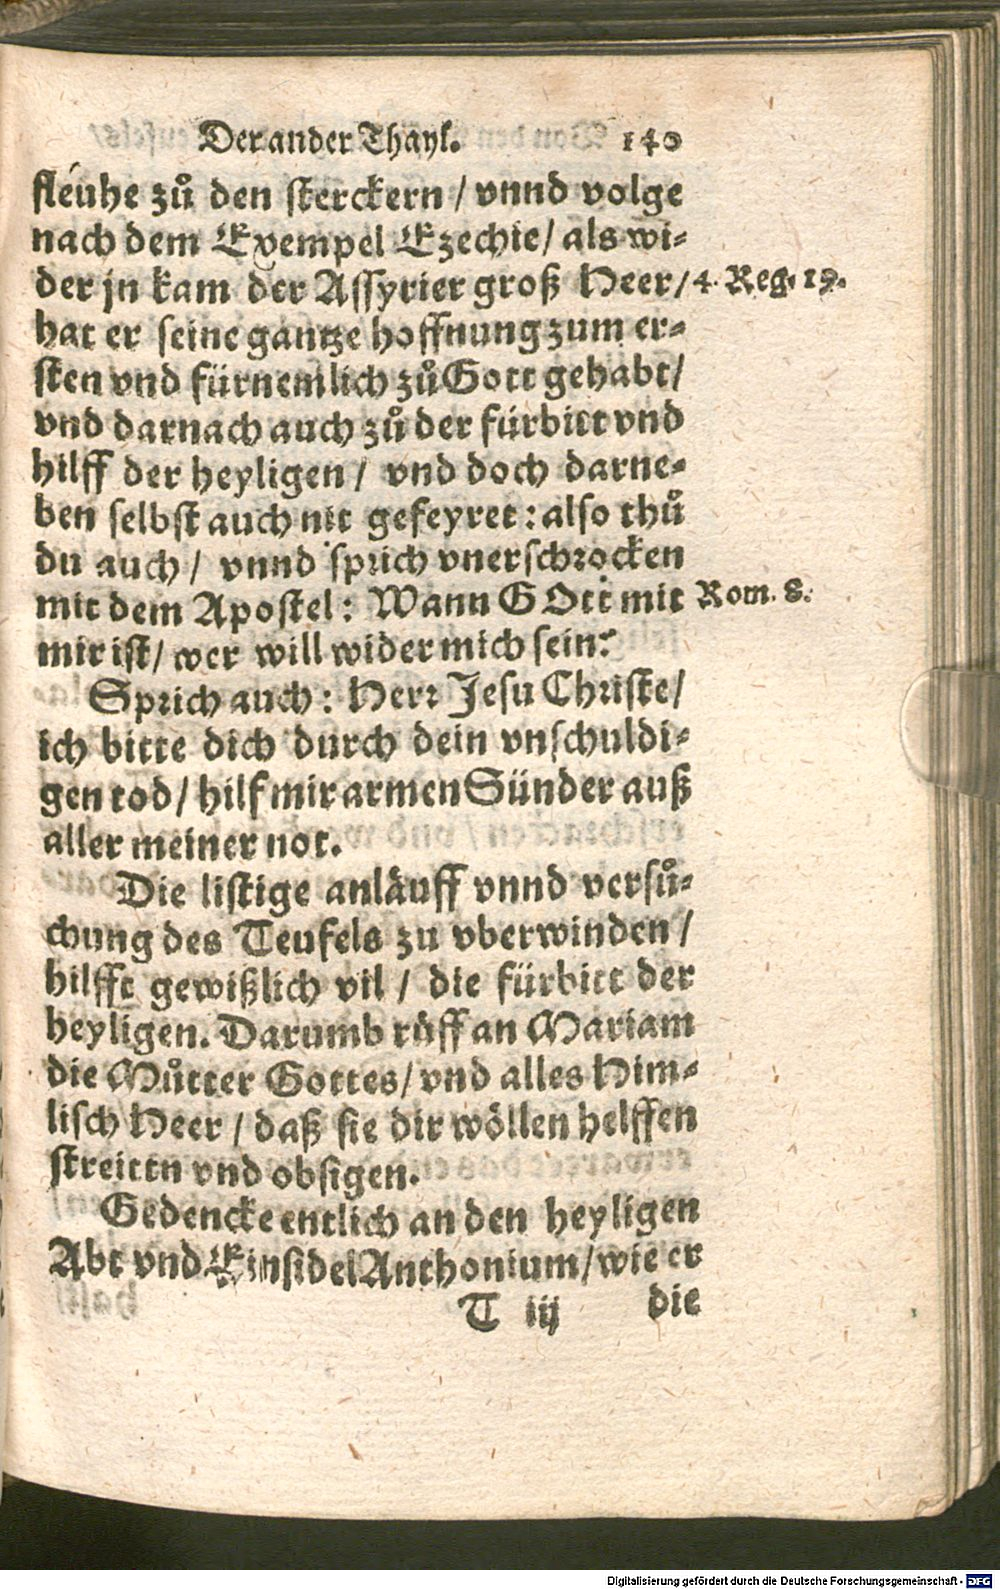 Der ander Thayl. 140
fleuhe zuͦ den sterckern / vnnd volge
nach dem Exempel Ezechie / als wi-
der jn kam der Assyrier groß Heer / 4. Reg. 19.
hat er seine gantze hoffnung zum er-
sten vnd fürnemlich zuͦ Gott gehabt /
vnd darnach auch zuͦ der fürbitt vnd
hilff der heyligen / vnd doch darne-
ben selbst auch nit gefeyret : also thuͦ
du auch / vnnd sprich vnerschrocken
mit dem Apostel : Wann GOtt mit Rom. 8.
mir ist / wer will wider mich sein?
Sprich auch : Herr Jesu Christe /
ich bitte dich durch dein vnschuldi-
gen tod / hilf mir armen Sünder auß
aller meiner not.
Die listige anläuff vnnd versuͦ-
chung des Teufels zu vberwinden /
hilfft gewißlich vil / die fürbitt der
heyligen. Darumb rüff an Mariam
die Muͦtter Gottes / vnd alles Him-
lisch Heer / daß sie dir wöllen helffen
streittn vnd obsigen.
Gedencke entlich an den heyligen
Abt vnd Einsidel Anthonium / wie er
T iij die
Digitalisierung gefördert durch die Deutsche Forschungsgemeinschaft - DFG